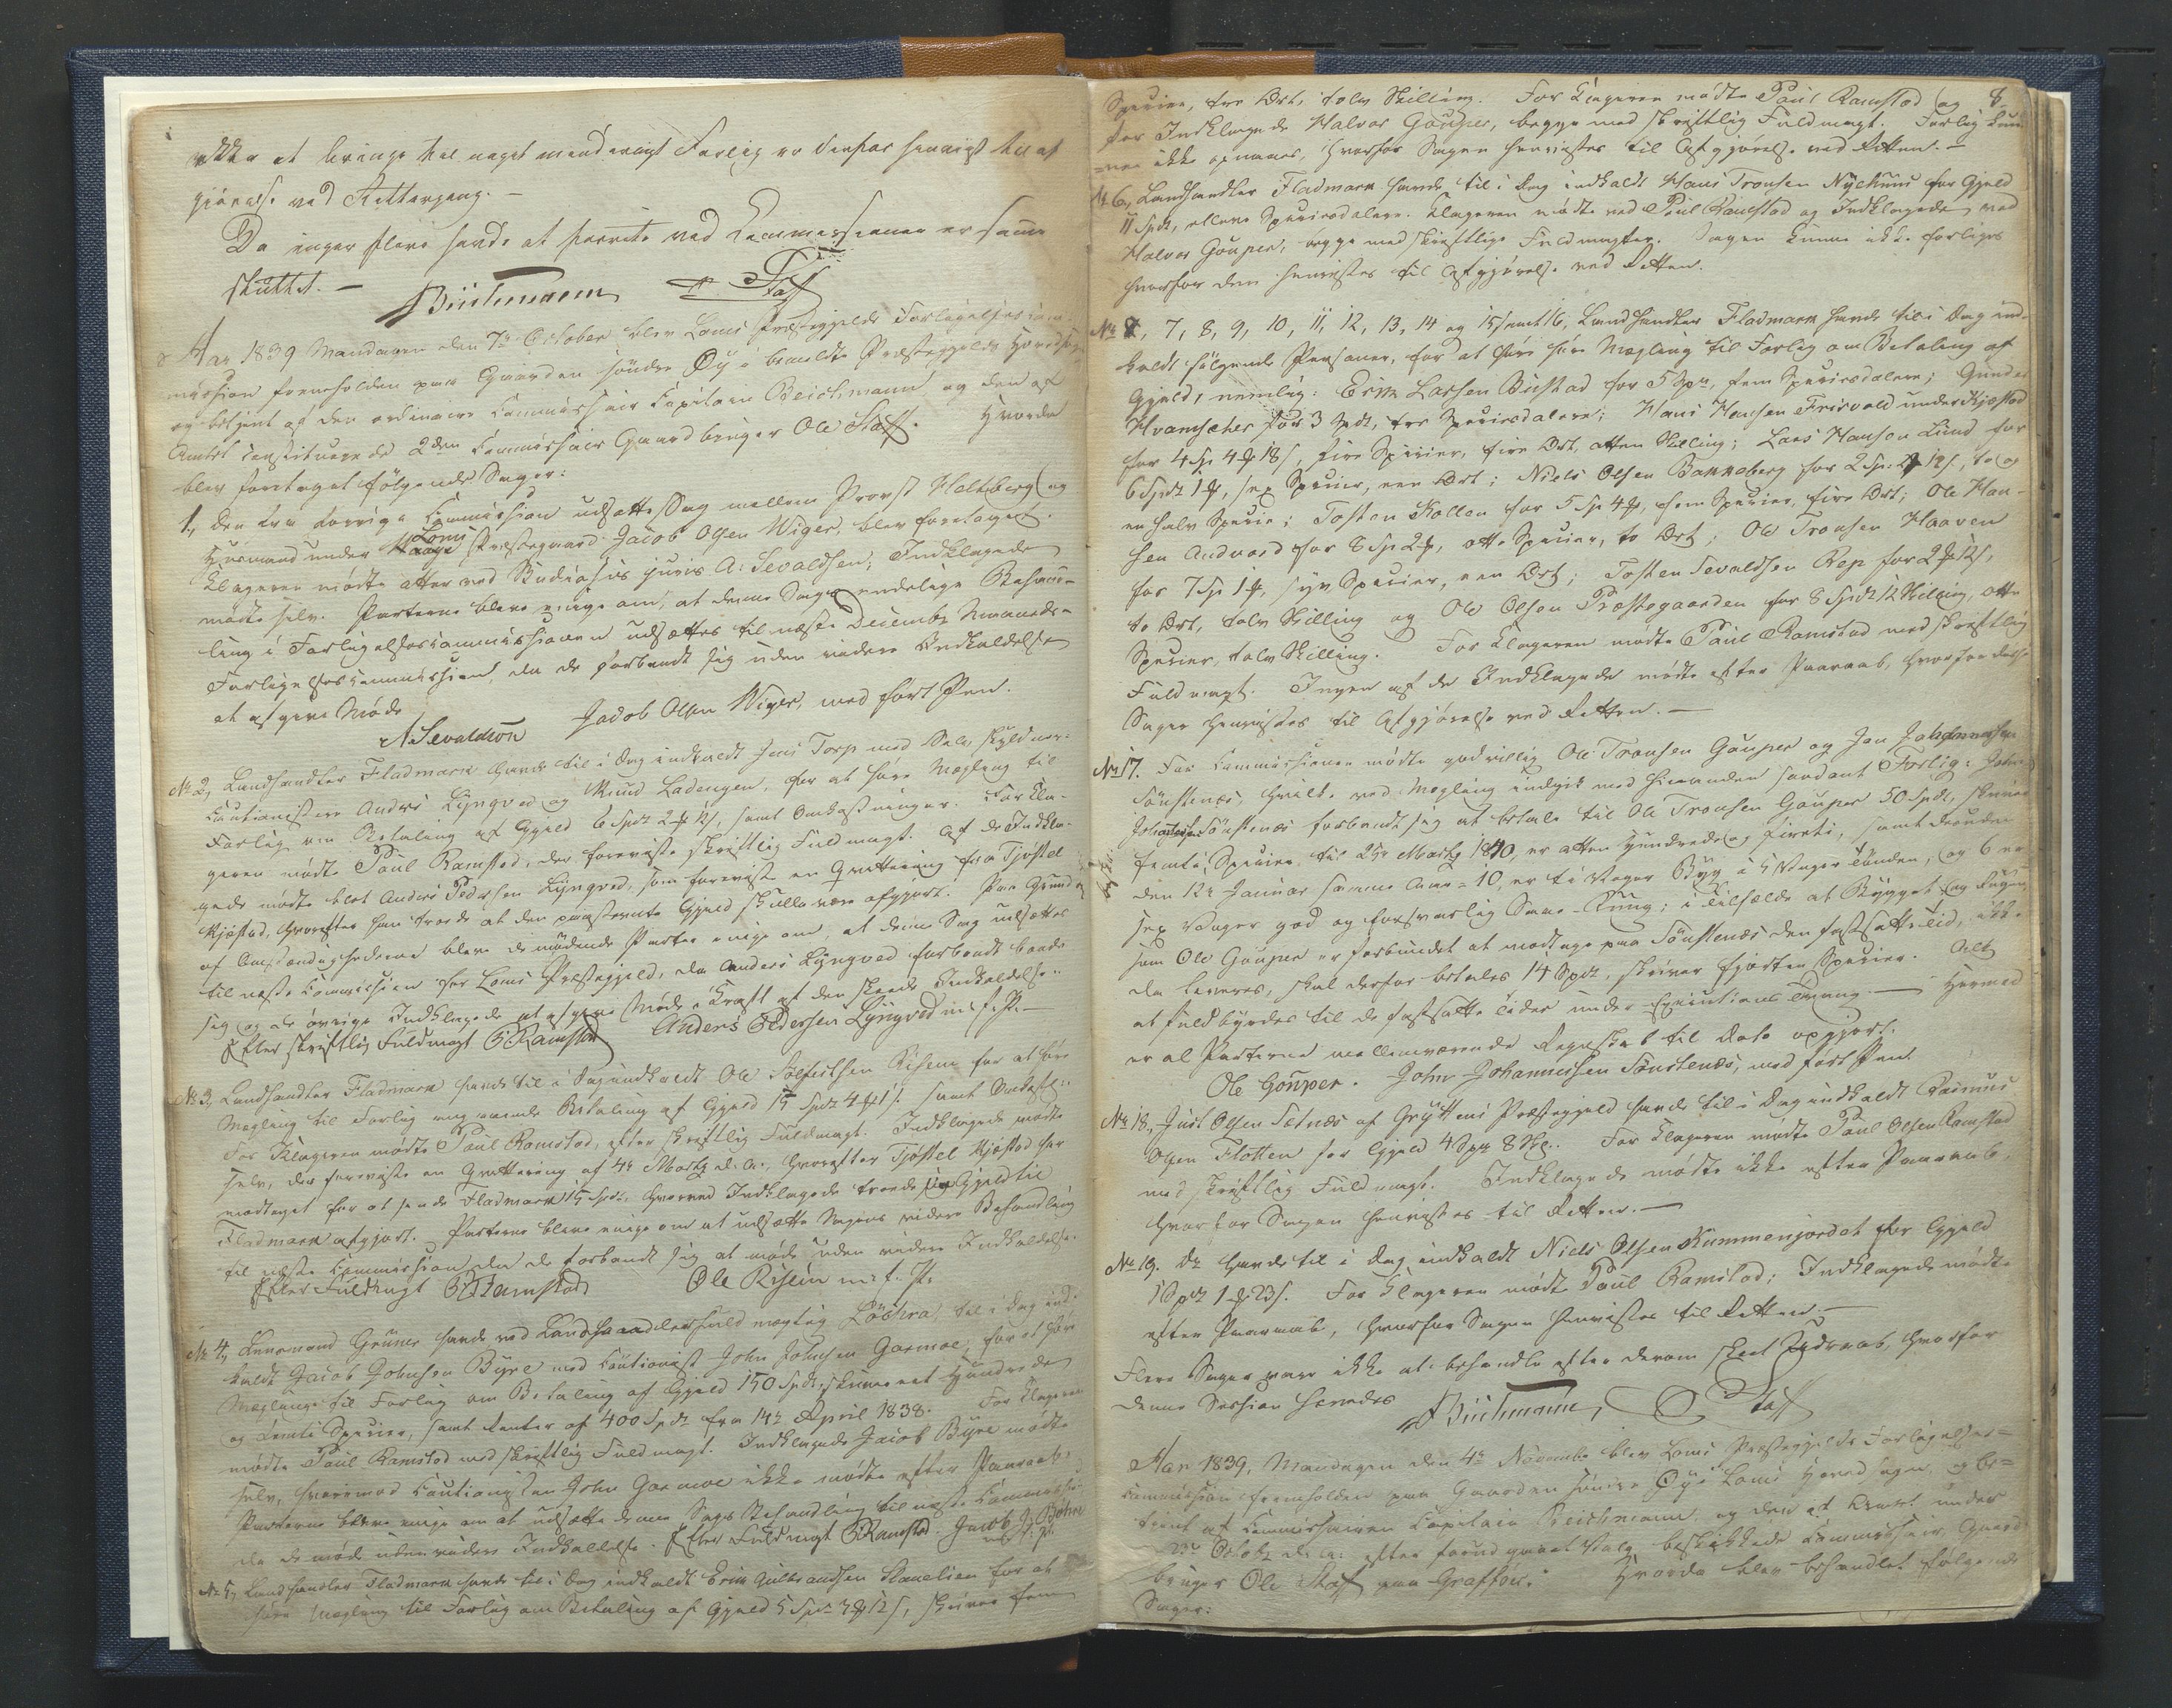 ikke at bringe til noget mindeligt Forlig er derfor henvist til Af
gjørelse ved Rettergang. —
Da ingen flere havde at forrette ved Commissionen er samme
sluttet. —
Beichmann Staff
Aar 1839 Mandagen den 7de October blev Loms Præstegjelds Forligelsescom-
mission fremholden paa Gaarden søndre Øy i bemeldte Præstegjelds Hovedsogn
og betjent af den ordinaire Commissair Capitain Beichmann og den af
Amtet constituerede 2den Commissair Gaardbruger Ole Staff. Hvorda
blev foretaget følgende Sager:
1, Den fra forrige Commission udsatte Sag mellem Provst Holtberg og
Huusmand under Loms Præstegaard Jacob Olsen Wiger, blev foretaget.
Klageren mødte atter ved Studiosus juris A. Sevaldsen; Indklagede
mødte selv. Parterne bleve enige om, at denne Sags endelige Behand-
ling i Forligelsescommissionen udsættes til næste December Maaneds
Forligelsescommission, da de forbandt sig uden videre Indkaldelse
at afgive Møde
A Sevaldson Jacob Olsen Wiger, med ført Pen.
No 2, Landhandler Fladmark havde til i Dag indkaldt Jens Torp med Selvskyldner-
Cautionister Anders Lyngved og Knud Ladengen, for at høre Mægling til
Forlig om Betaling af Gjeld 6 Spdr 2 ₰ 12 s, samt Omkostninger. For Kla-
geren mødte Poul Ramstad, der foreviste skriftlig Fuldmagt. Af de Indkla-
gede mødte blot Anders Pedersen Lyngved, som foreviste en Qvittering fra Tjøstel
Kjøstad, hvorefter han troede at den paastevnte Gjeld skulle være afgjort. Paa Grund
af Omstændighederne bleve de mødende Parter enige om, at denne Sag udsættes
til næste Commission for Loms Præstegjeld, da Anders Lyngved forbandt baade
sig og de øvrige Indklagede at afgive Møde i Kraft af den skeede Indkaldelse.
Efter skriftlig Fuldmagt P Ramstad Anders Pedersen Lyngved m. f. P. —
No 3, Landhandler Fladmark havde til i Dag indkaldt Ole Solfestsen Risem for at høre
Mægling til Forlig angaaende Betaling af Gjeld 15 Spdr 4 ₰ 1 s. samt Omkost.
For Klageren mødte Poul Ramstad, efter skriftlig Fuldmagt. Indklagede mødte
selv, der foreviste en Qvittering af 4de Marts d. A., hvorefter Tjøstel Kjøstad har
modtaget for at sende Fladmark 15 Spdr, hvorved Indklagede troede sin Gjeld til
Fladmark afgjort. Parterne bleve enige om at udsætte Sagens videre Behandling
til næste Commission da de forbandt sig at møde uden videre Indkaldelse.
Efter Fuldmagt P Ramstad Ole Risem m. f. P.
No 4, Lensmand Grüner havde ved Landhandlerfuldmægtig Löchra, til i Dag ind-
kaldt Jacob Johnsen Byre med Cautionist John Johnsen Garmoe, for at høre
Mægling til Forlig om Betaling af Gjeld 150 Spdr, skriver eet Hundrede
og femti Specier, samt Renter af 400 Spdr fra 14de April 1838. For Klageren
mødte Poul Ramstad med skriftlig Fuldmagt. Indklagede Jacob Byre mødte
selv, hvorimod Cautionisten John Garmoe ikke mødte efter Paaraab.
Parterne bleve enige om at udsætte denne Sags Behandling til næste Commission
da de møde uden videre Indkaldelse. Efter Fuldmagt P Ramstad. Jacob J. Böhre
m. f. P.
No 5, Landhandler Fladmark havde til i Dag indkaldt Erik Gulbrandsen Stamlien for at
høre Mægling til Forlig om Betaling af Gjeld 5 Spdr 3 ₰ 12 s, skriver fem
8.
Specier, tre Ort, tolv Skilling. For Klageren mødte Poul Ramstad og
for Indklagede Halvor Goüper, begge med skriftlig Fuldmagt. Forlig kun-
ne ikke opnaaes, hvorfor Sagen henvistes til Afgjørelse ved Retten. —
No 6, Landhandler Fladmark havde til i Dag indkaldt Hans Tronsen Nÿehuus for Gjeld
11 Spdr, elleve Speciesdalere. Klageren mødte ved Poul Ramstad og Indklagede ved
Halvor Goüper, begge med skriftlige Fuldmagter. Sagen kunne ikke forliges
hvorfor den henvistes til Afgjørelse ved Retten.
No 7, 8, 9, 10, 11, 12, 13, 14 og 15 samt 16, Landhandler Fladmark havde til i Dag ind-
kaldt følgende Personer, for at høre Mægling til Forlig om Betaling af
Gjeld, nemlig: Erik Larsen Bustad for 5 Spd, fem Speciesdalere; Gunder
Hvamsether for 3 Spdr, tre Speciesdalere; Hans Hansen Frisvold under Kjøstad
for 4 Sp 4 ₰ 18 s, fire Specier, fire Ort, atten Skilling; Lars Hanson Lund for
6 Spdr 1 ₰, sex Specier, een Ort; Niels Olsen Bakkeberg for 2 Sp. 2 ₰ 12 s, to og
en halv Specie; Tosten Kollen for 5 Sp 4 ₰, fem Specier, fire Ort; Ole Han-
sen Andvord for 8 Sp 2 ₰, otte Specier, to Ort; Ole Tronsen Haaven
for 7 Sp 1 ₰, syv Specier, een Ort; Tosten Sevaldsen Rep for 2 ₰ 12 s,
to Ort, tolv Skilling og Ole Olsen Præstegaarden for 8 Spdr 12 Skilling, otte
Specier, tolv Skilling. For Klageren mødte Poul Ramstad med skriftlig
Fuldmagt. Ingen af de Indklagede mødte efter Paaraab, hvorfor disse
Sager henvistes til Afgjørelse ved Retten. —
No 17. For Commissionen mødte godvillig Ole Tronsen Goüper og Jon Johannessen
Sönstenæs, hvilke ved Mægling indgik med hinanden saadant Forlig: John
Johannessen Sönstenæs forbandt sig at betale til Ole Tronsen Goüper 50 Spdr, skriver
femti Specier, til 25de Marts 1840, er atten Hundrede og fireti, samt desuden
den 12te Januar samme Aar 10, er ti Vager Byg à 5 Vager Tönden, og 6 er
sex Vager god og forsvarlig Saae-Rug; i Tilfælde at Bygget og Rugen,
som Ole Goüper er forbundet at modtage paa Sönstenæs den fastsatte Tid, ikke
da leveres, skal derfor betales 14 Spdr, skriver fjorten Specier. Alt
at fuldbyrdes til de fastsatte Tider under Executions Tvang. — Hermed
er al Parterne mellemværende Regnskab til Dato opgjort.
Ole Goüper. John Johannessen Sönstenæs, med ført Pen.
No 18, Just Olsen Setnæs af Gryttens Præstegjeld havde til i Dag indkaldt Rasmus
Olsen Flotten for Gjeld 4 Spdr 8 Sk. For Klageren mødte Poul Olsen Ramstad
med skriftlig Fuldmagt. Indklagede mødte ikke efter Paaraab,
hvorfor Sagen henvistes til Retten. —
No 19. Do havde til i Dag indkaldt Niels Olsen Kummenjordet for Gjeld
1 Spdr 1 ₰ 23 s. For Klageren mødte Poul Ramstad; Indklagede mødte
efter Paaraab, hvorfor Sagen henvistes til Retten. —
Flere Sager vare ikke at behandle efter derom skeet Udraab, hvorfor
denne Session hævedes Beichmann, O Staff
Aar 1839, Mandagen den 4de November blev Loms Præstegjelds Forligelses-
commission fremholden paa Gaarden søndre Øy i Loms Hovedsogn, og be-
tjent af Commissairen Capitain Beichmann, og den af Amtet under
Octobr d. A. efter foregaaet Valg beskikkede Commissair, Gaard-
bruger Ole Staff paa Graffer. Hvorda blev behandlet følgende
Sager: